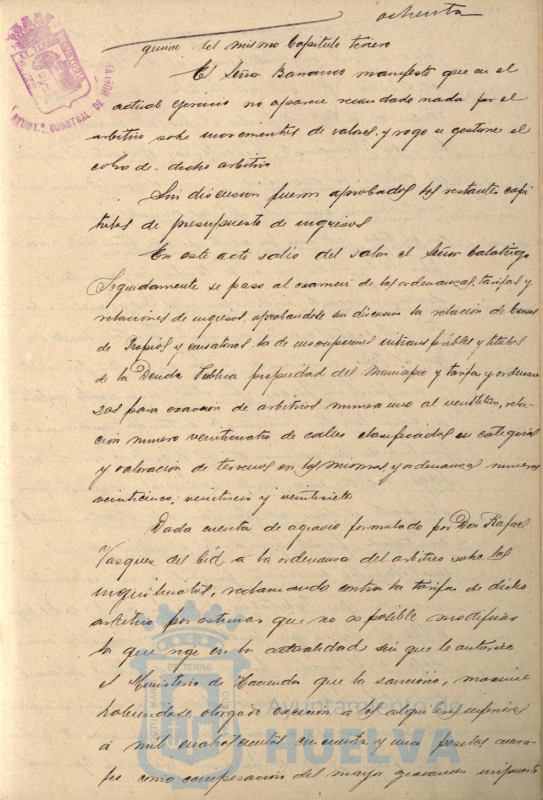 ochenta
quince del mismo Capitulo tercero
El Señor Barranco manifestó que en el
actual ejercicio no aparece recaudado nada por el
arbitrio sobre incrementos de valores, y rogo se gestione el
cobro de dicho arbitrio
Sin discusion fueron aprobados los restantes capi
tulos de presupuesto de ingresos
En este acto salio del salon el Señor Calatrigo
Seguidamente se paso al examen de las ordenanzas, tarifas y
relaciones de ingresos, aprobandose sin discusion la relación de bienes
de Propios y la de inscripciones intransferibles y titulos
de la Deuda Publica propiedad del Municipio y tarifas y ordenan
zas para exaccion de arbitrios numero uno al veintitres, rela
cion numero veinticuatro de calles clasificadas en categorias
y valoración de terrenos en las mismas y ordenanzas numeros
veinticinco, veintiseis y veintisiete
Dada cuenta de agravio formulado por Don Rafael
Vasquez del Cid a la ordenanza del arbitrio sobre los
inquilinatos, reclamando contra la tarifa de dicho
arbitrio por estimar que no es posible modificar
la que rige en la actualidad sin que lo autorice
el Ministerio de Hacienda que la sanciono, maxime
habiendose otorgado exencion a los alquileres inferiores
a mil cuatrocientas cincuenta y una pesetas anua
les como compensacion del mayor gravamen impuesto
AYUNT.º CONSTNAL DE HUELVA
Ayuntamiento de
HUELVA